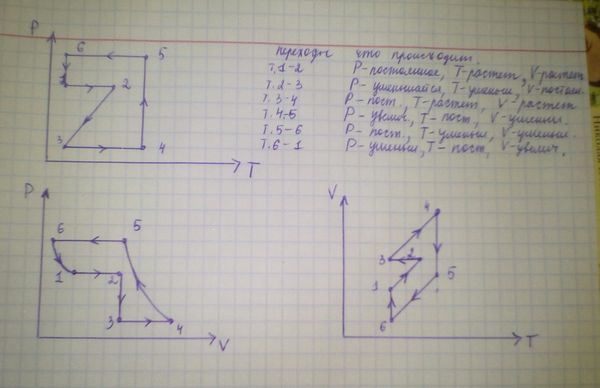 P
6
5
1
2
3
4
T
переходы что происходит.
Т. 1-2 P-постоянное, T-растет, V-растет
Т. 2-3 P-уменьшается, T-уменьш, V-постоян.
Т. 3-4 P-пост., T-растет, V-растет
Т. 4-5 P-увелич., T-пост., V-уменьш.
Т. 5-6 P-пост., T-уменьш, V-уменьш.
Т. 6-1 P-уменьш, T-пост, V-увелич.
P
6
5
1
2
3
4
V
V
4
3
2
1
5
6
T